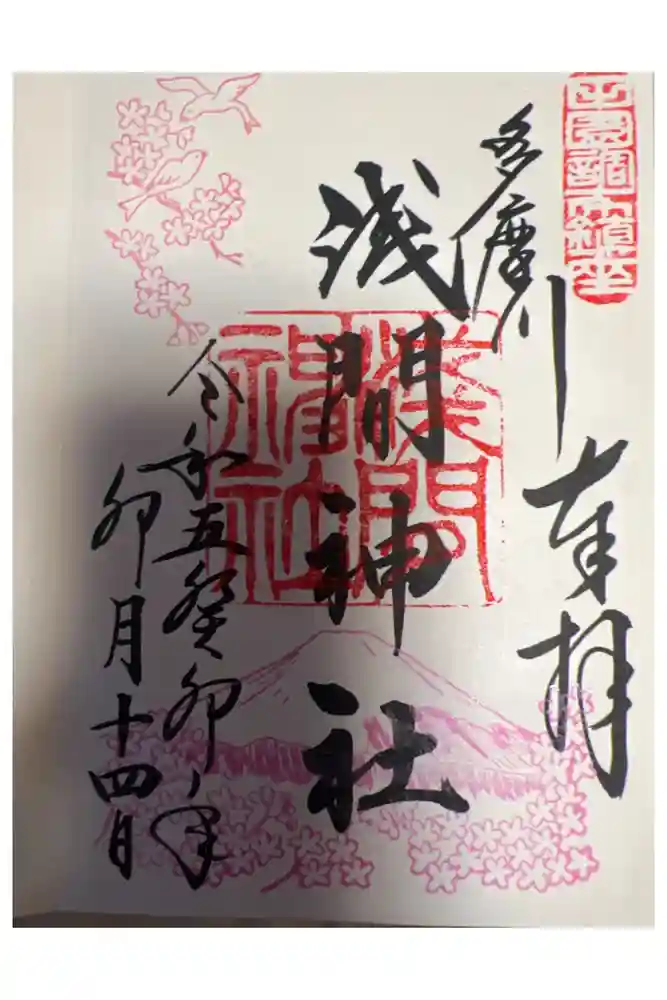 田園調布鎮座
奉拝
多摩川
浅間神社
浅間
神社
令和五癸卯年
卯月十四日